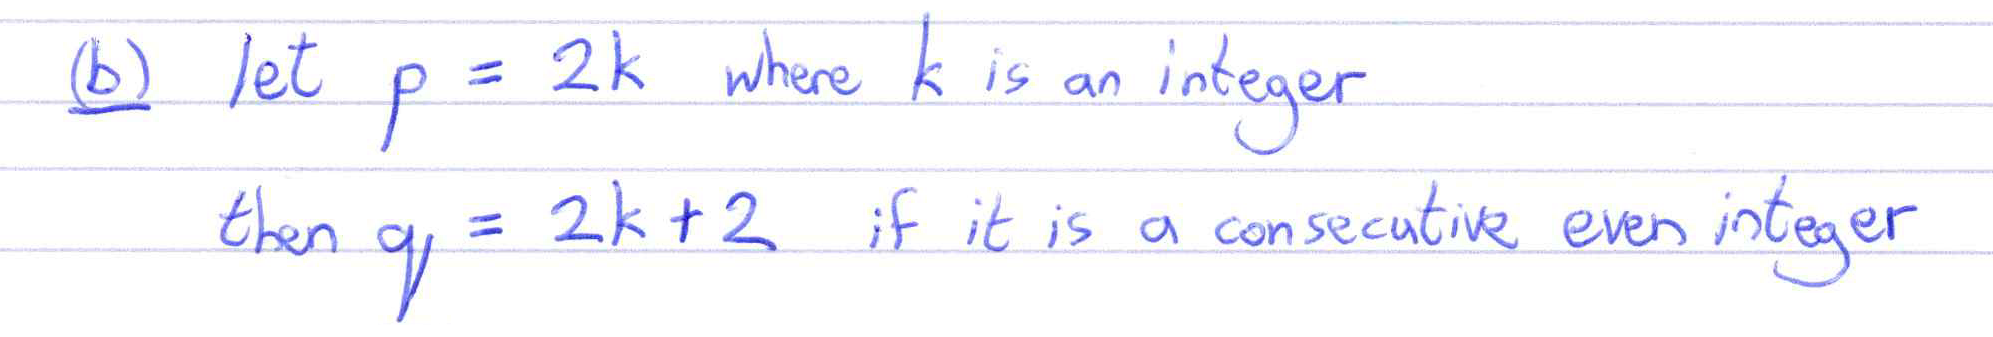 (b) let p = 2k where k is an integer
then q = 2k + 2 if it is a consecutive even integer